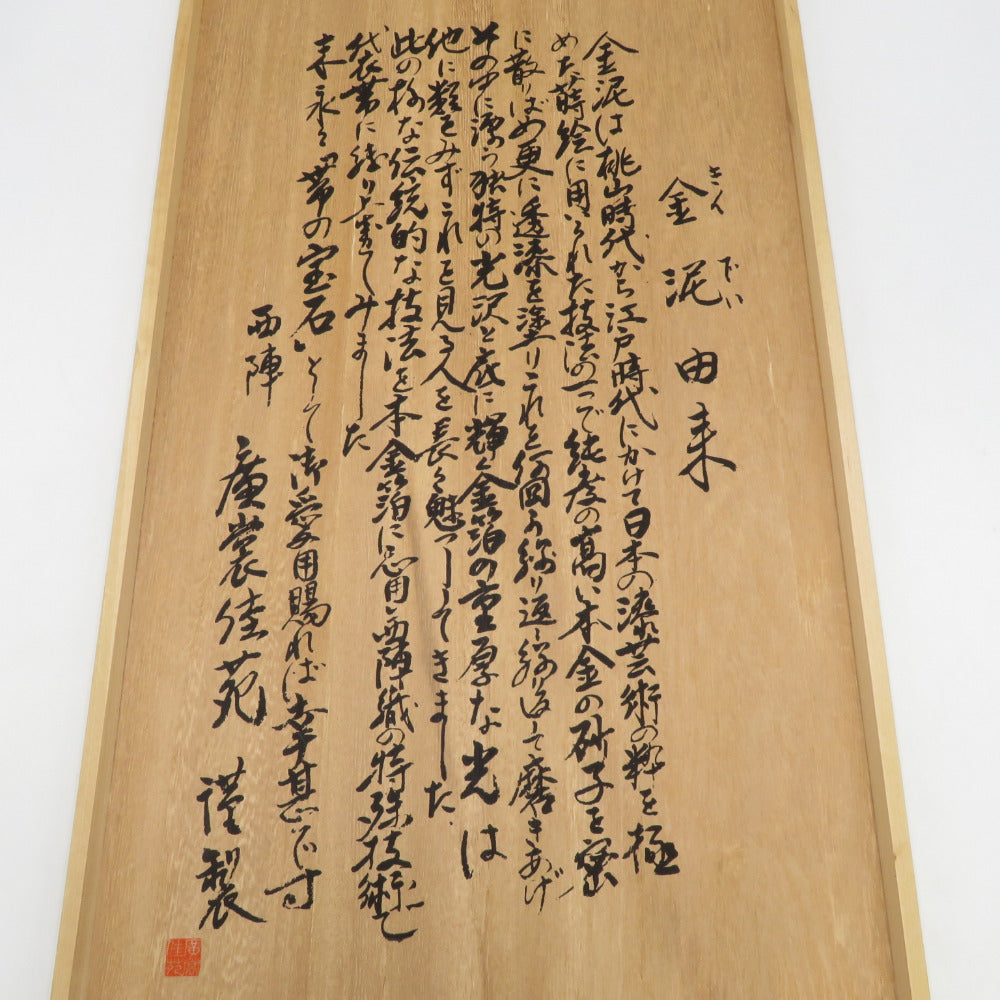 金泥由来
きんでい
金泥は桃山時代から江戸時代にかけて日本の漆芸術の粋を極
めた蒔絵に用いられた技法の一つで純度の高い本金の砂子を密
に散りばめ更に透漆を塗りこれを何回か繰り返し繰り返して磨きあげ
その中に漂う独特の光沢と底に輝く金箔の重厚な光は
他に類をみずこれを見る人を長く魅了してきました
此の様な伝統的な技法を本金箔に応用し西陣織の特殊技術で
代表帯に織り上げてみました
末永く『帯の宝石』として御愛用賜れば幸甚で御座います
西陣
廣裳佳苑 謹製